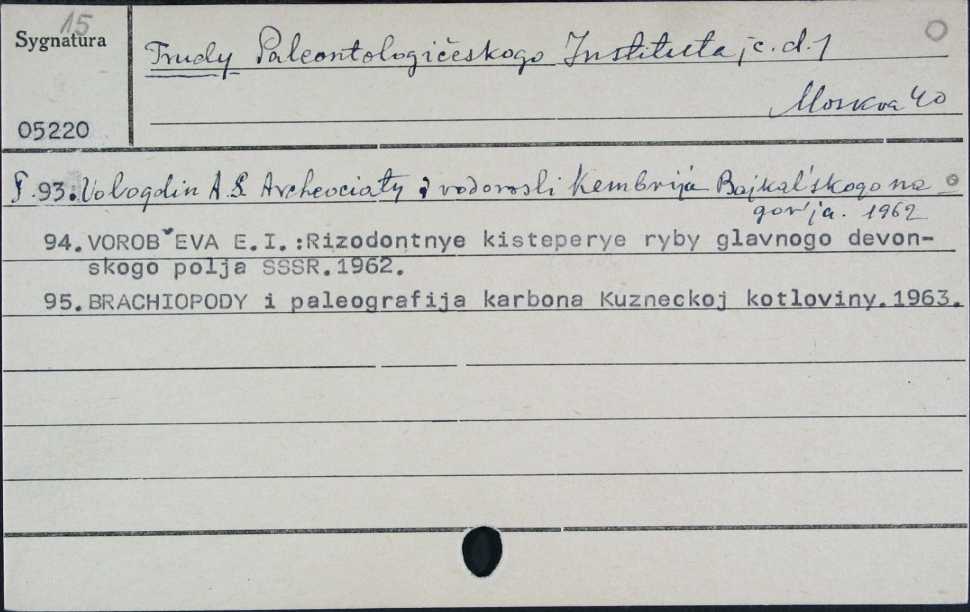 15
Sygnatura
05220
Trudy Paleontologičeskogo Instituta, c.d.1
Moskva 40
T.93. Vologdin A.G. Archeociaty i vodorosli Kembrija Bajkal'skogo na
gor'ja. 1962
94. VOROB'EVA E.I.:Rizodontnye kisteperye ryby glavnogo devon-
skogo polja SSSR.1962.
95. BRACHIOPODY i paleografija karbona Kuzneckoj kotloviny.1963.